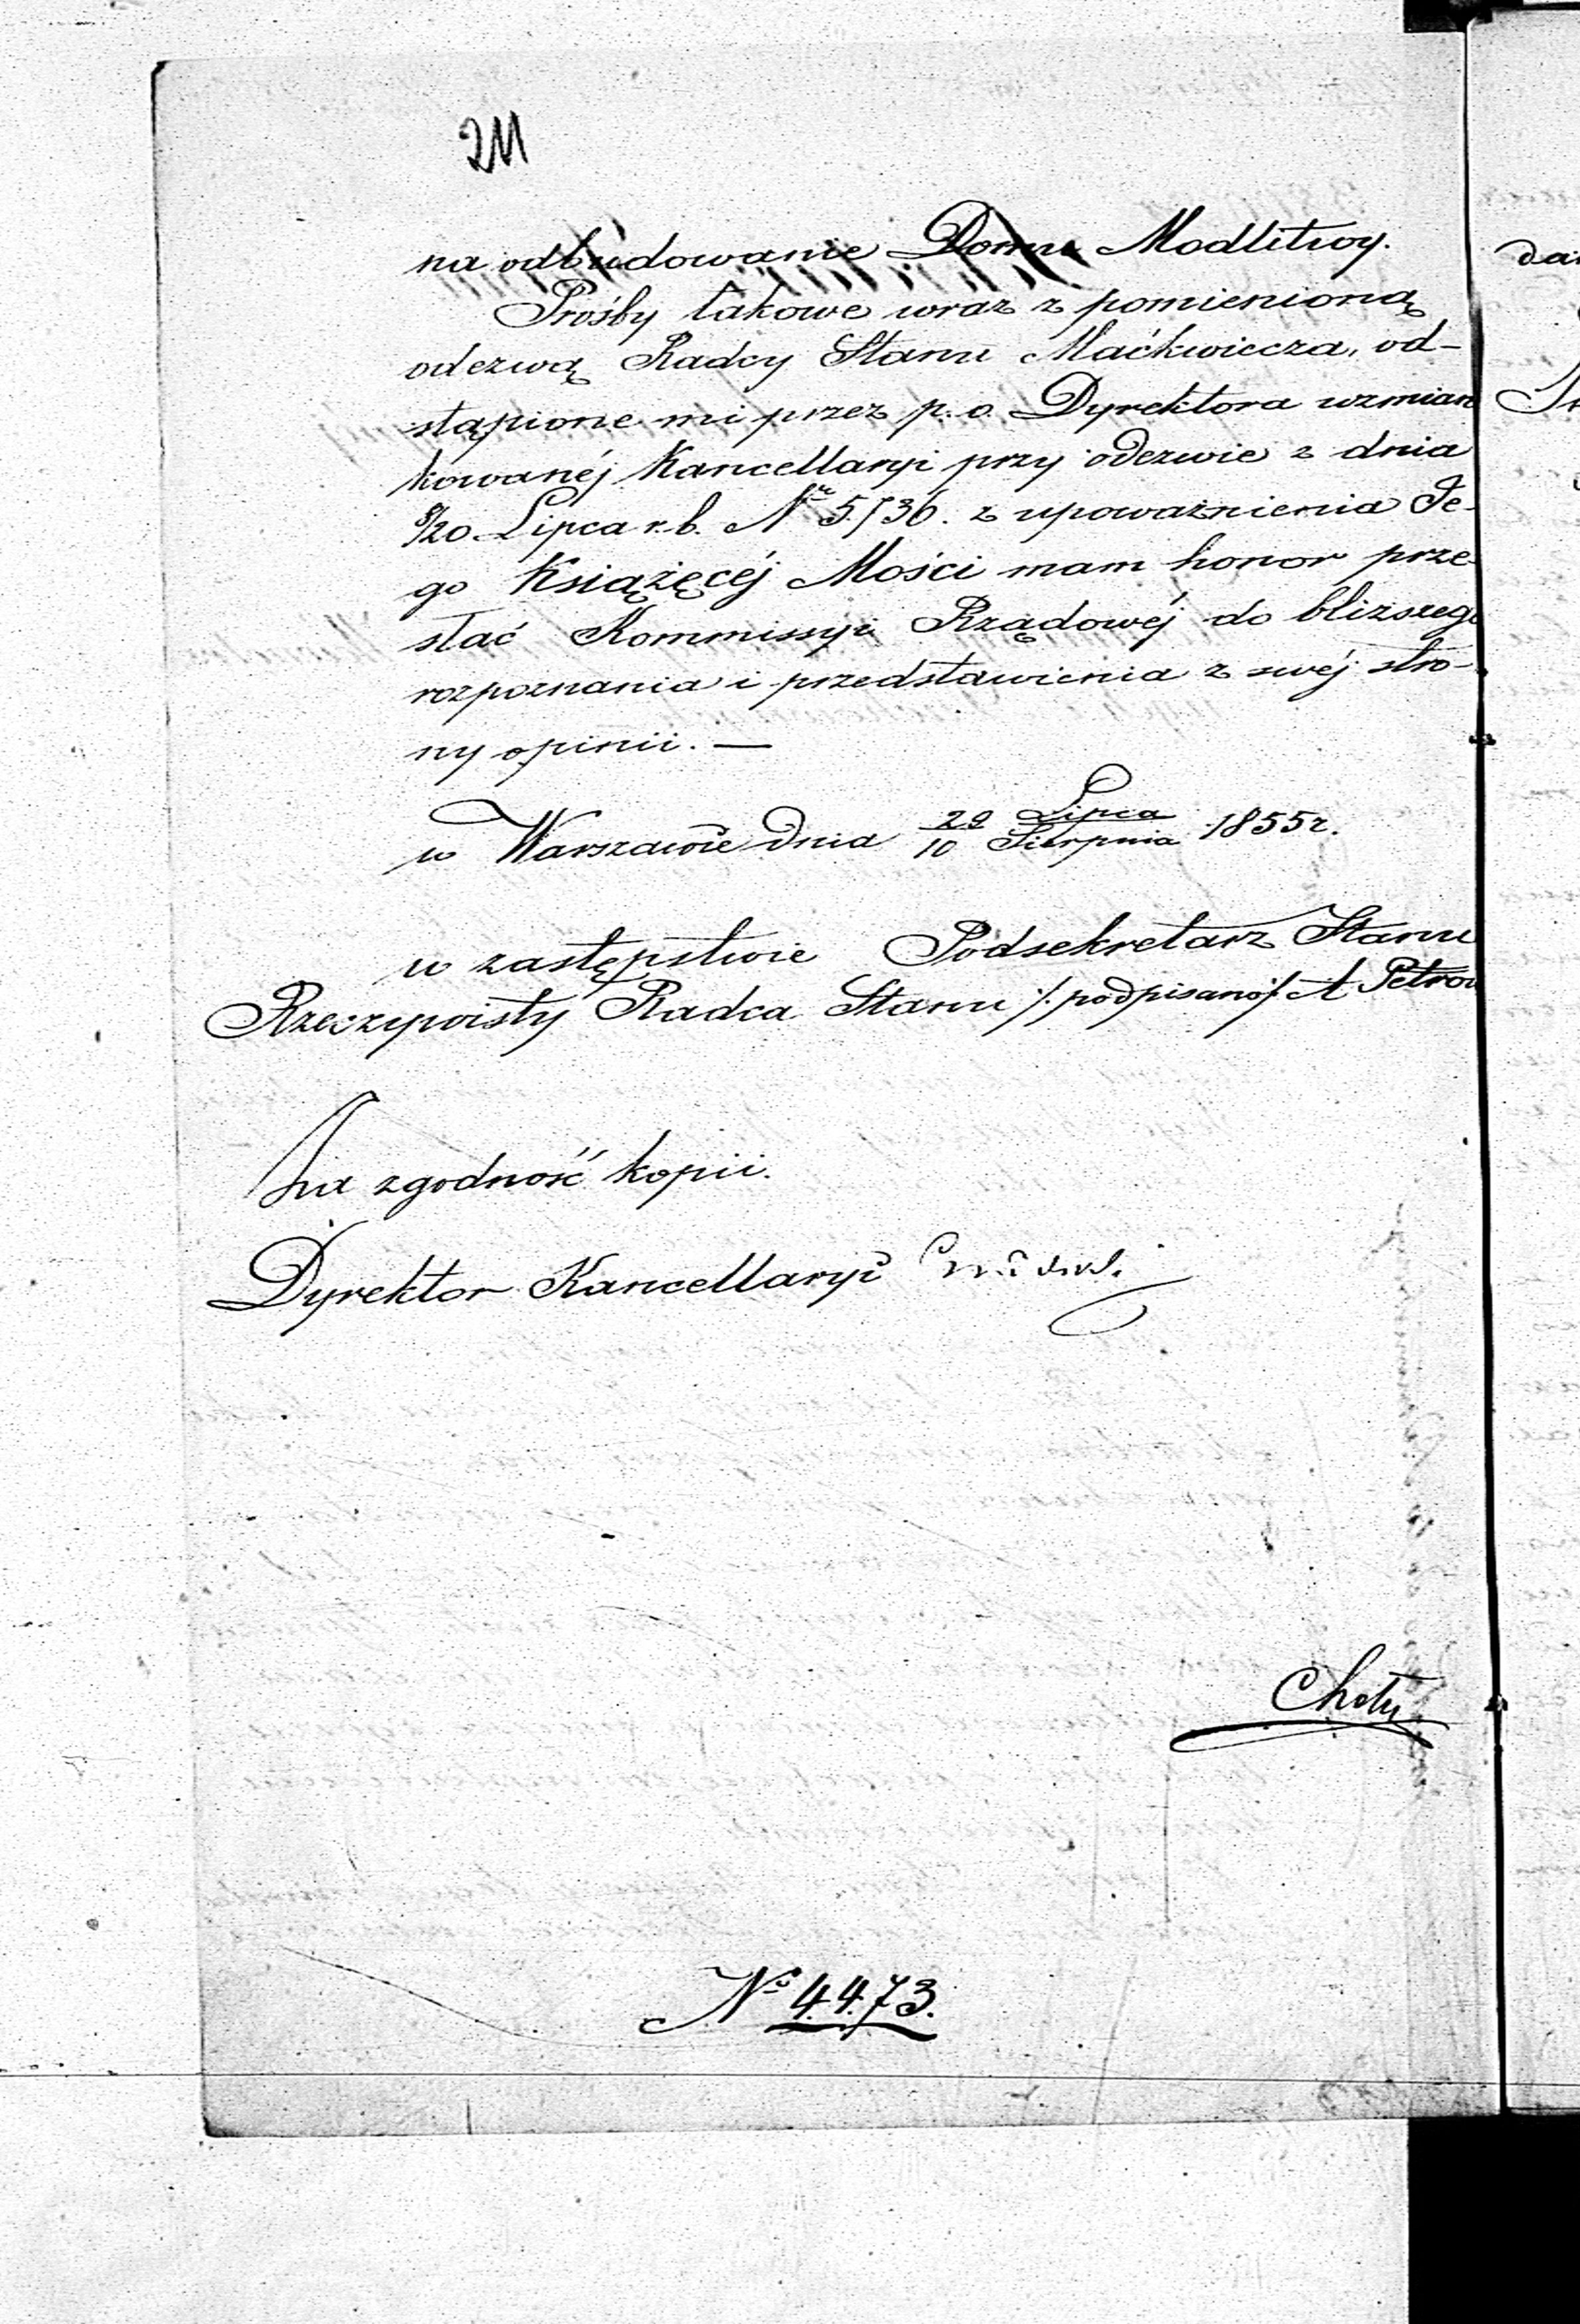 211
na odbudowanie Domu Modlitwy.
Prośby takowe wraz z pomienioną
odezwą Radcy Stanu Maćkwiecza, od-
stąpione mi przez p. o. Dyrektora wzmian
kowanéj Kancellaryi przy odezwie z dnia
8/20 Lipca r. b. Nr 5,736. z upoważnienia Je-
go Książęcéj Mości mam honor prze-
słać Kommissyi Rządowéj do bliższego
rozpoznania i przedstawienia z swéj stro-
ny opinii. —
w Warszawie dnia 29 Lipca / 10 Sierpnia 1855 r.
w zastępstwie Podsekretarz Stanu
Rzeczywisty Radca Stanu /. podpisano ./ A Petrow
Za zgodność kopii.
Dyrektor Kancellaryi
No 4473.